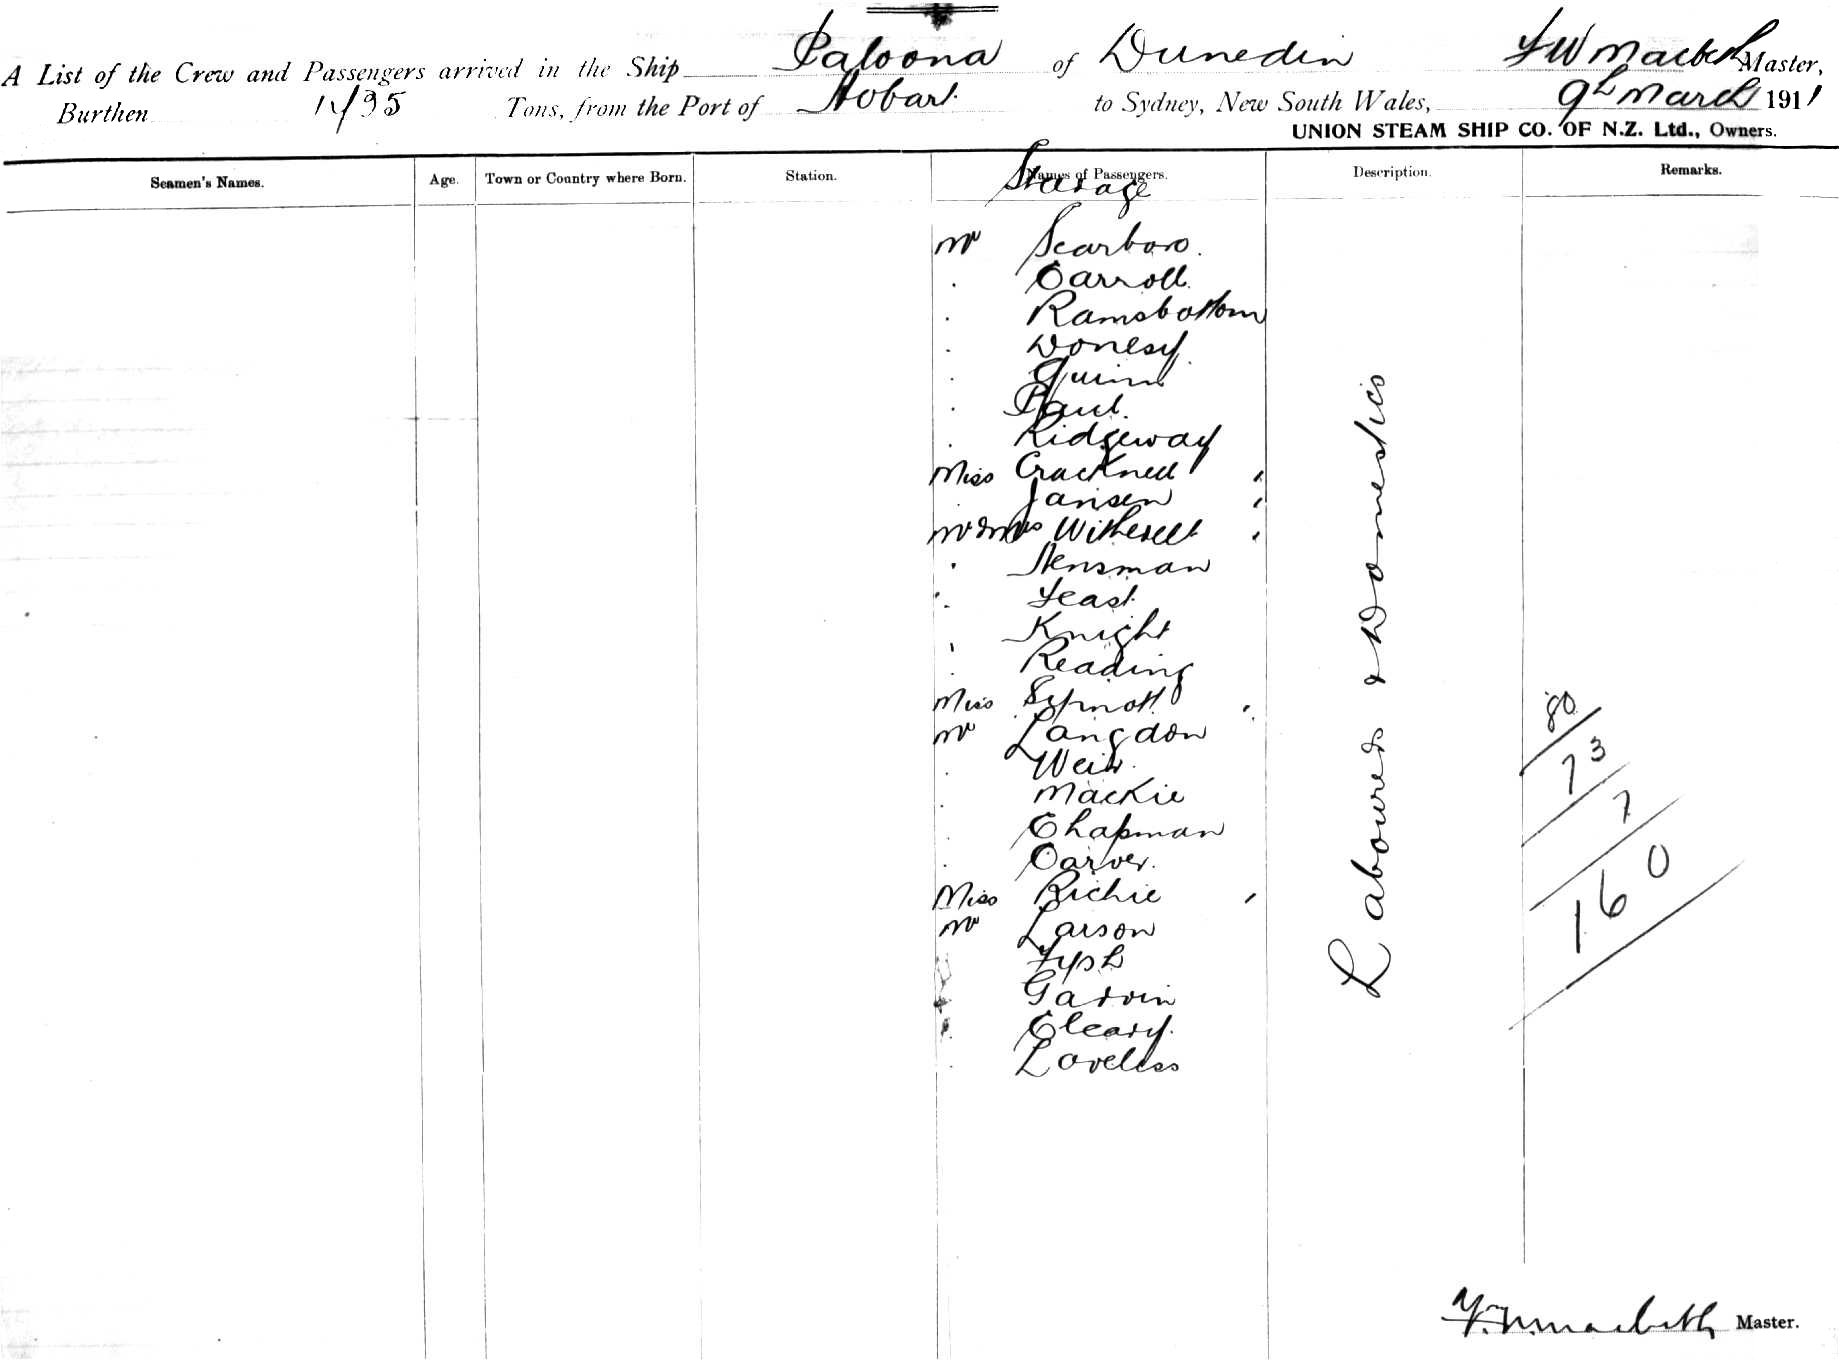 A List of the Crew and Passengers arrived in the Ship Paloona of Dunedin F W Macbeth Master,
Burthen Tons, from the Port of Hobart to Sydney, New South Wales, 9th March 1911
UNION STEAM SHIP CO. OF N.Z. Ltd., Owners.
Seamen's Names. Age. Town or Country where Born. Station. Names of Passengers. Description. Remarks.
Mr Scarboro.
. Carroll.
. Ramsbottom
. Donesy
. Quinn
. Paul.
. Ridgeway
Miss Cracknell
. Jansen
Mr & Mrs Witherell
. Hensman
. Feast
. Knight
. Reading
Miss
Mr Langdon
. Weir.
. Mackie
. Chapman
. Carver.
Miss Richie
Mr Larson
Fysh
Garvin
Cleary.
. Loveless
Labourers & Domestics
80
73
7
160
F. W. Macbeth Master.